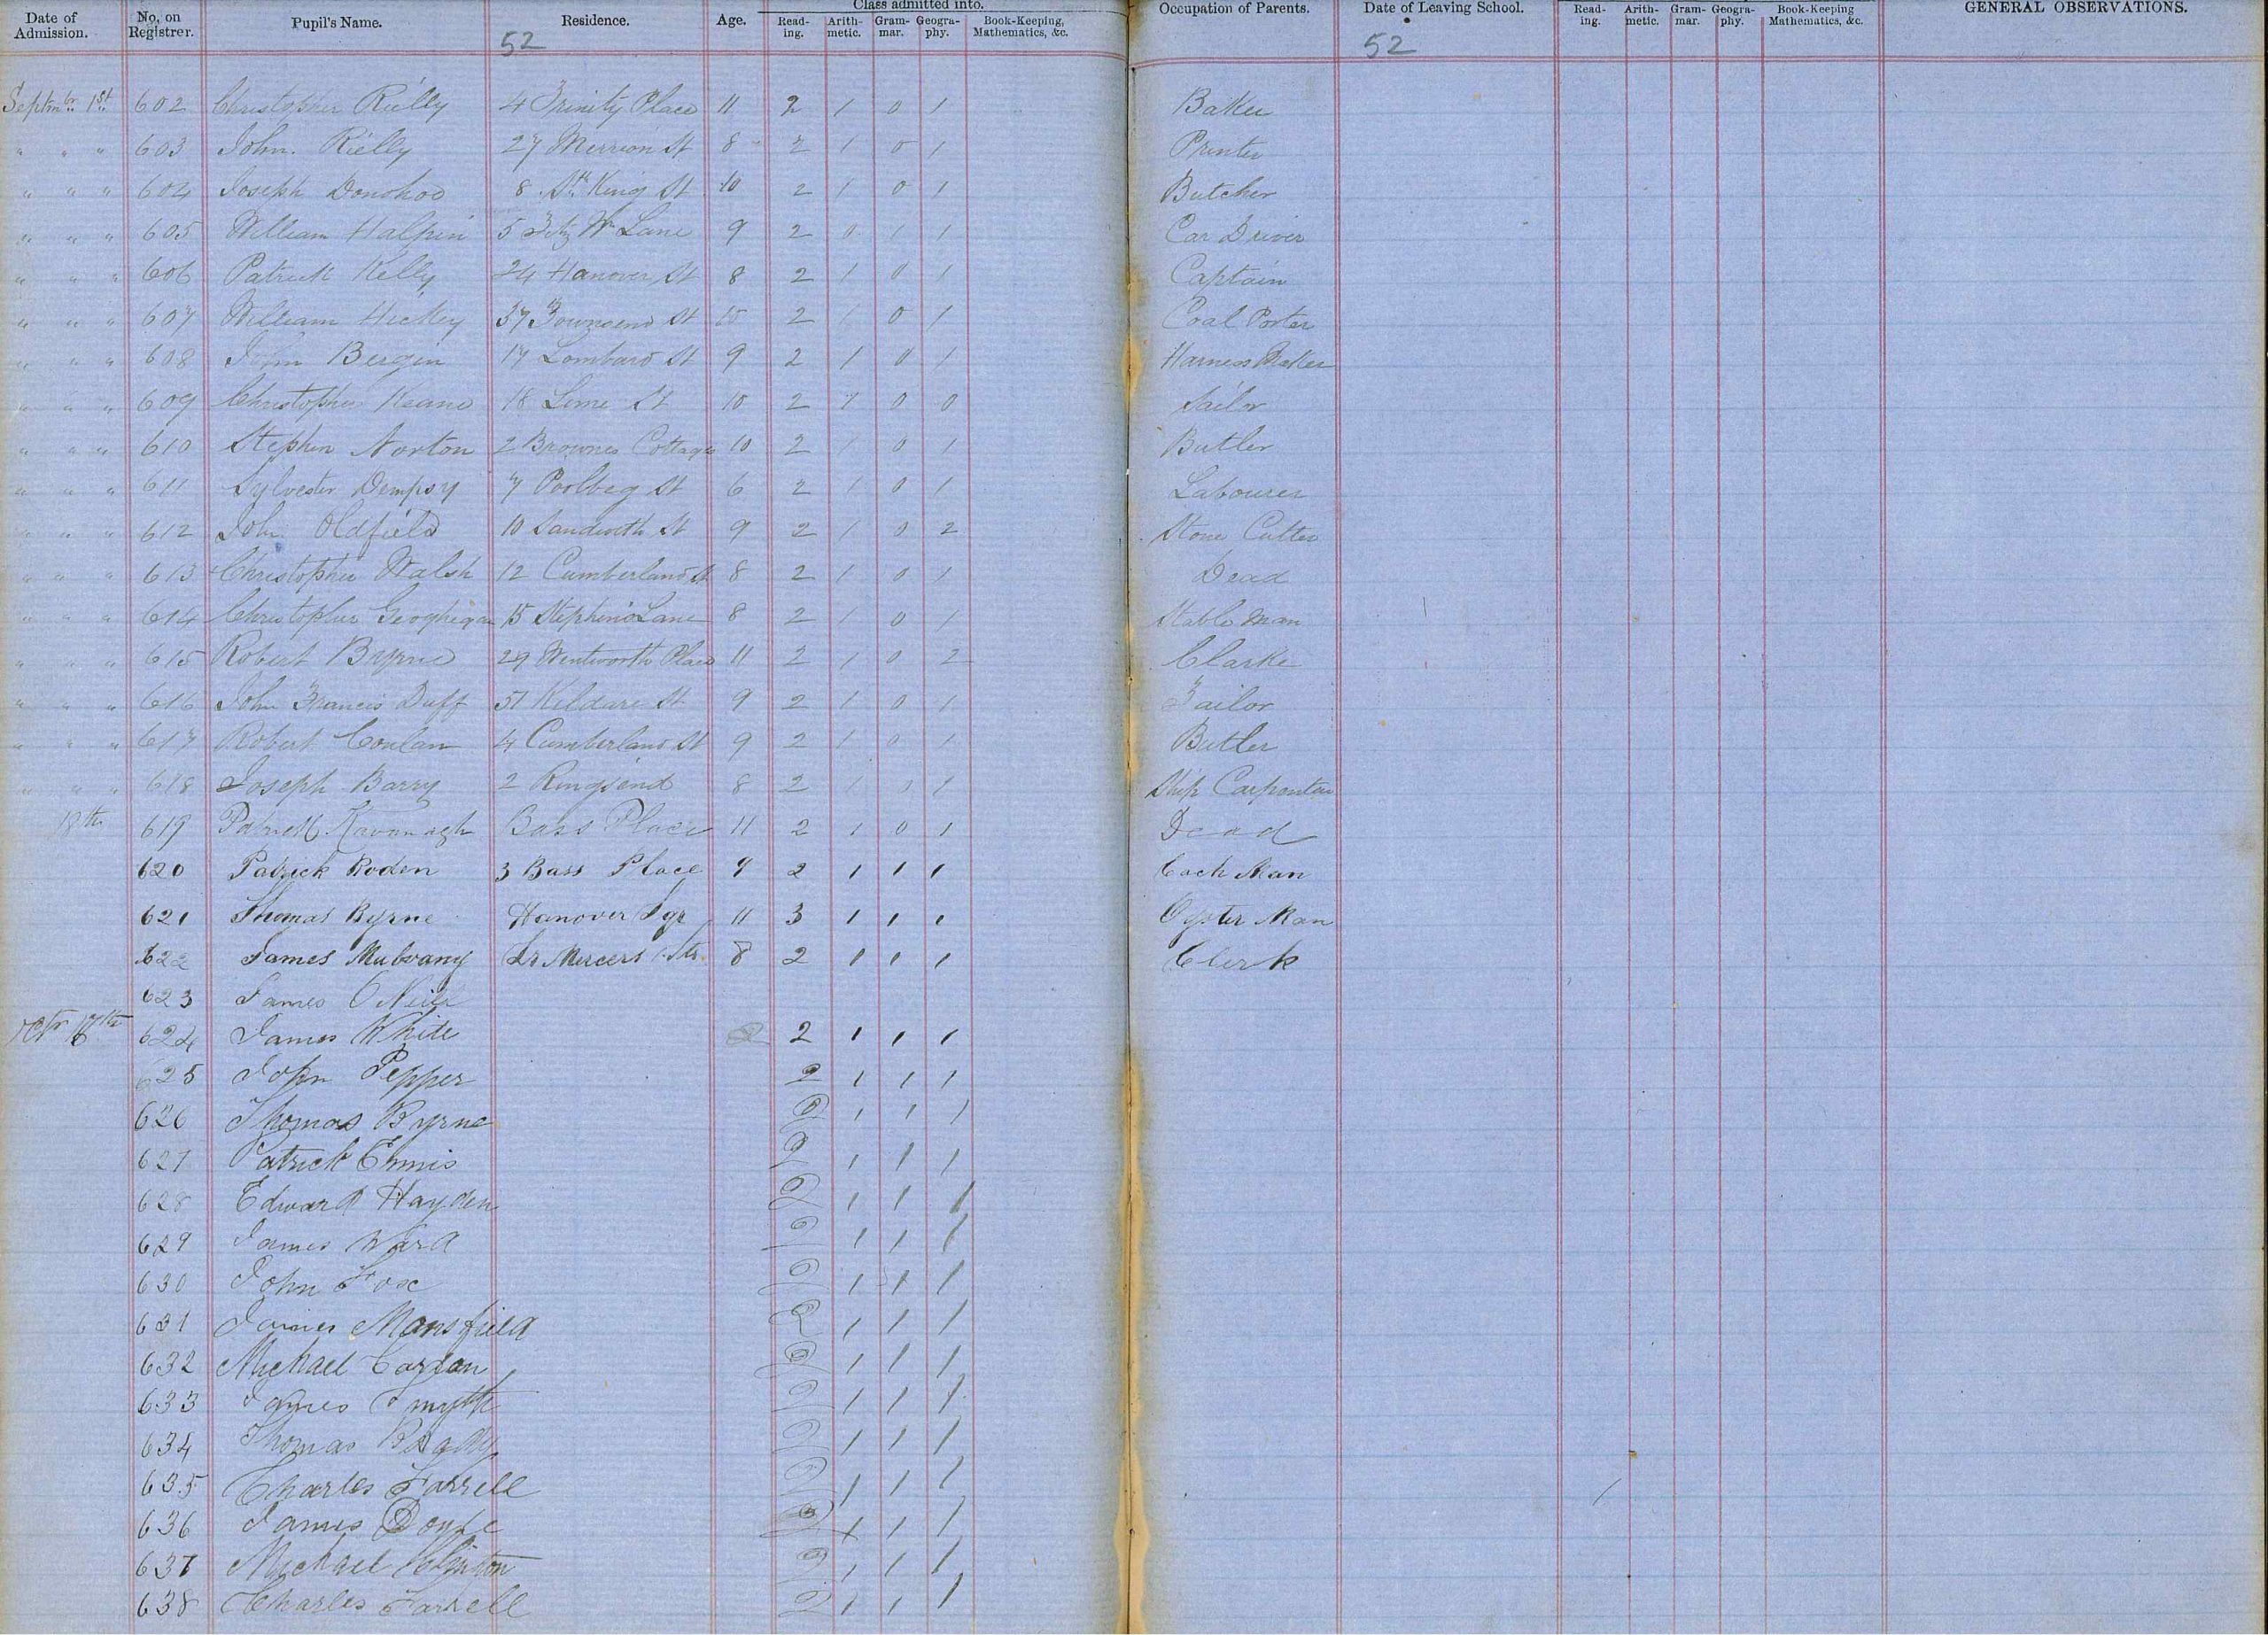 Date of Admission. No. on Registrer. Pupil's Name. Residence. Age. Class admitted into. Reading. Arithmetic. Grammar. Geography. Book-Keeping, Mathematics, &c. Occupation of Parents. Date of Leaving School. Reading. Arithmetic. Grammar. Geography. Book-Keeping Mathematics, &c. GENERAL OBSERVATIONS.
52 52
Septmbr 1st 602 Christopher Rielly 4 Trinity Place 11 2 1 0 1 Baker
" " " 603 John Rielly 27 Merrion St 8 2 1 0 1 Printer
" " " 604 Joseph Donohoo 8 Sth King St 10 2 1 0 1 Butcher
" " " 605 William Halpin 5 Fitz Wm Lane 9 2 0 1 1 Car Driver
" " " 606 Patrick Kelly 24 Hanover St 8 2 1 0 1 Captain
" " " 607 William Hickey 57 Townsend St 10 2 1 0 1 Coal Porter
" " " 608 John Bergin 17 Lombard St 9 2 1 0 1 Harness Maker
" " " 609 Christopher Keane 18 Lime St 10 2 1 0 0 Sailor
" " " 610 Stephen Norton 2 Brownes Cottages 10 2 1 0 1 Butler
" " " 611 Sylvester Dempsy 7 Poolbeg St 6 2 1 0 1 Labourer
" " " 612 John Oldfield 10 Sandwith St 9 2 1 0 2 Stone Cutter
" " " 613 Christopher Walsh 12 Cumberland St 8 2 1 0 1 Dead
" " " 614 Christopher Geoghegan 15 Stephens Lane 8 2 1 0 1 Stable Man
" " " 615 Robert Byrne 29 Wentworth Place 11 2 1 0 2 Clarke
" " " 616 John Francis Duff 51 Kildare St 9 2 1 0 1 Tailor
" " " 617 Robert Conlan 4 Cumberland St 9 2 1 0 1 Butler
" " " 618 Joseph Barry 2 Ringsend 8 2 1 0 1 Ship Carpenter
18th 619 Patrick Kavanagh Bass Place 11 2 1 0 1 Dead
620 Patrick Roden 3 Bass Place 9 2 1 1 1 Coch Man
621 Thomas Byrne Hanover Sqr 11 3 1 1 1 Oyster Man
622 James Mulvany Lr Mercers Str. 8 2 1 1 1 Clerk
623 James O Neill
Octr 17th 624 James White 2 1 1 1
625 John Pepper 2 1 1 1
626 Thomas Byrne 2 1 1 1
627 Patrick Ennis 2 1 1 1
628 Edward Hayden 2 1 1 1
629 James Ward 2 1 1 1
630 John Fox 2 1 1 1
631 James Mansfield 2 1 1 1
632 Michael 2 1 1 1
633 James Smyth 2 1 1 1
634 Thomas Brady 2 1 1 1
635 Charles Farrell 2 1 1 1
636 James Doyle 2 1 1 1
637 Michael 2 1 1 1
638 Charles Farrell 2 1 1 1